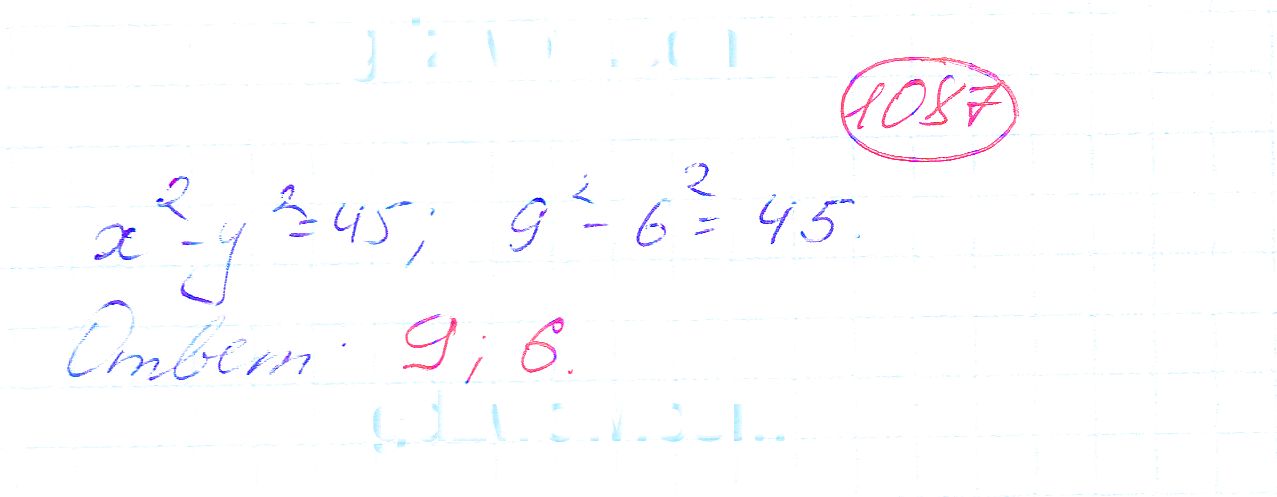 1087
x² - y² = 45; 9² - 6² = 45.
Ответ: 9; 6.